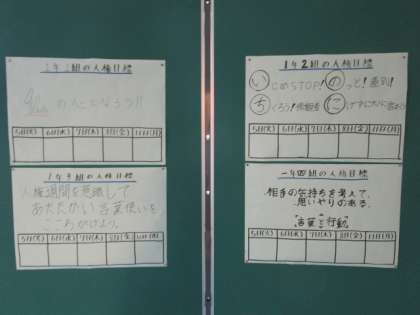 1年1組の人権目標
の人になろう!!
5日(火) 6日(水) 7日(木) 8日(金) 11日(月)
1年3組の人権目標
人権週間を意識して
あたたかい言葉使いを
こころがけよう。
5日(火) 6日(水) 7日(木) 8日(金) 11日(月)
1年2組の人権目標
いじめSTOP! のっと!差別!
ち くろう! に
5日(火) 6日(水) 7日(木) 8日(金) 11日(月)
一年四組の人権目標
相手の気持ちを考えて、
思いやりのある、
"言葉と行動"
5日(火) 6日(水) 7日(木) 8日(金) 11日(月)